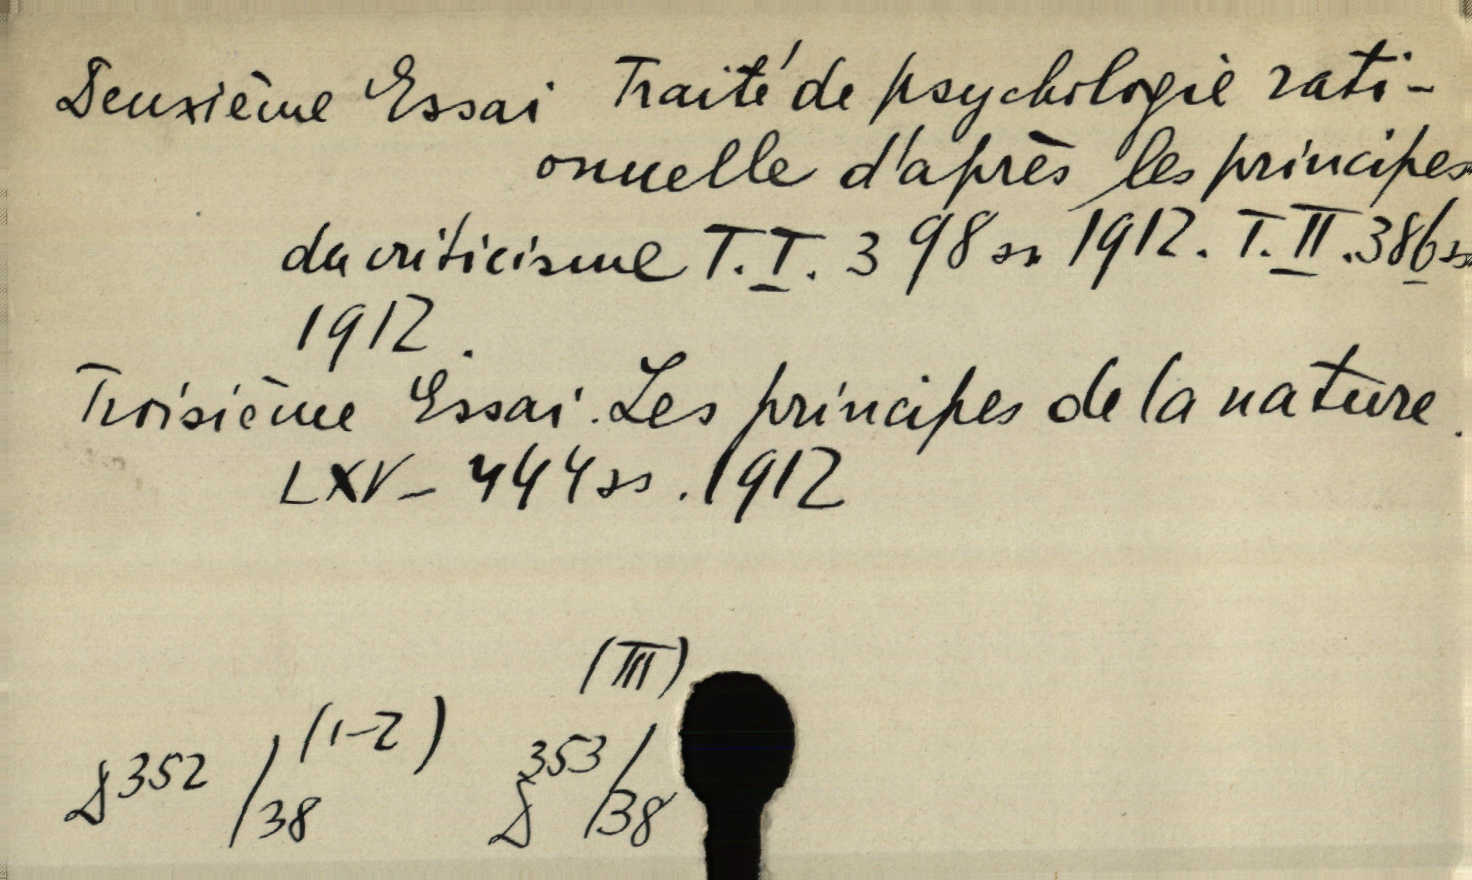 Deuxième Essai Traité de psychologie rati-
onnelle d'après les principes
du criticisme T. I. 398 ss 1912. T. II. 386 ss
1912.
Troisième Essai. Les principes de la nature.
LXV - 444 ss. 1912
(III)
352/38 (1-2) 353/38